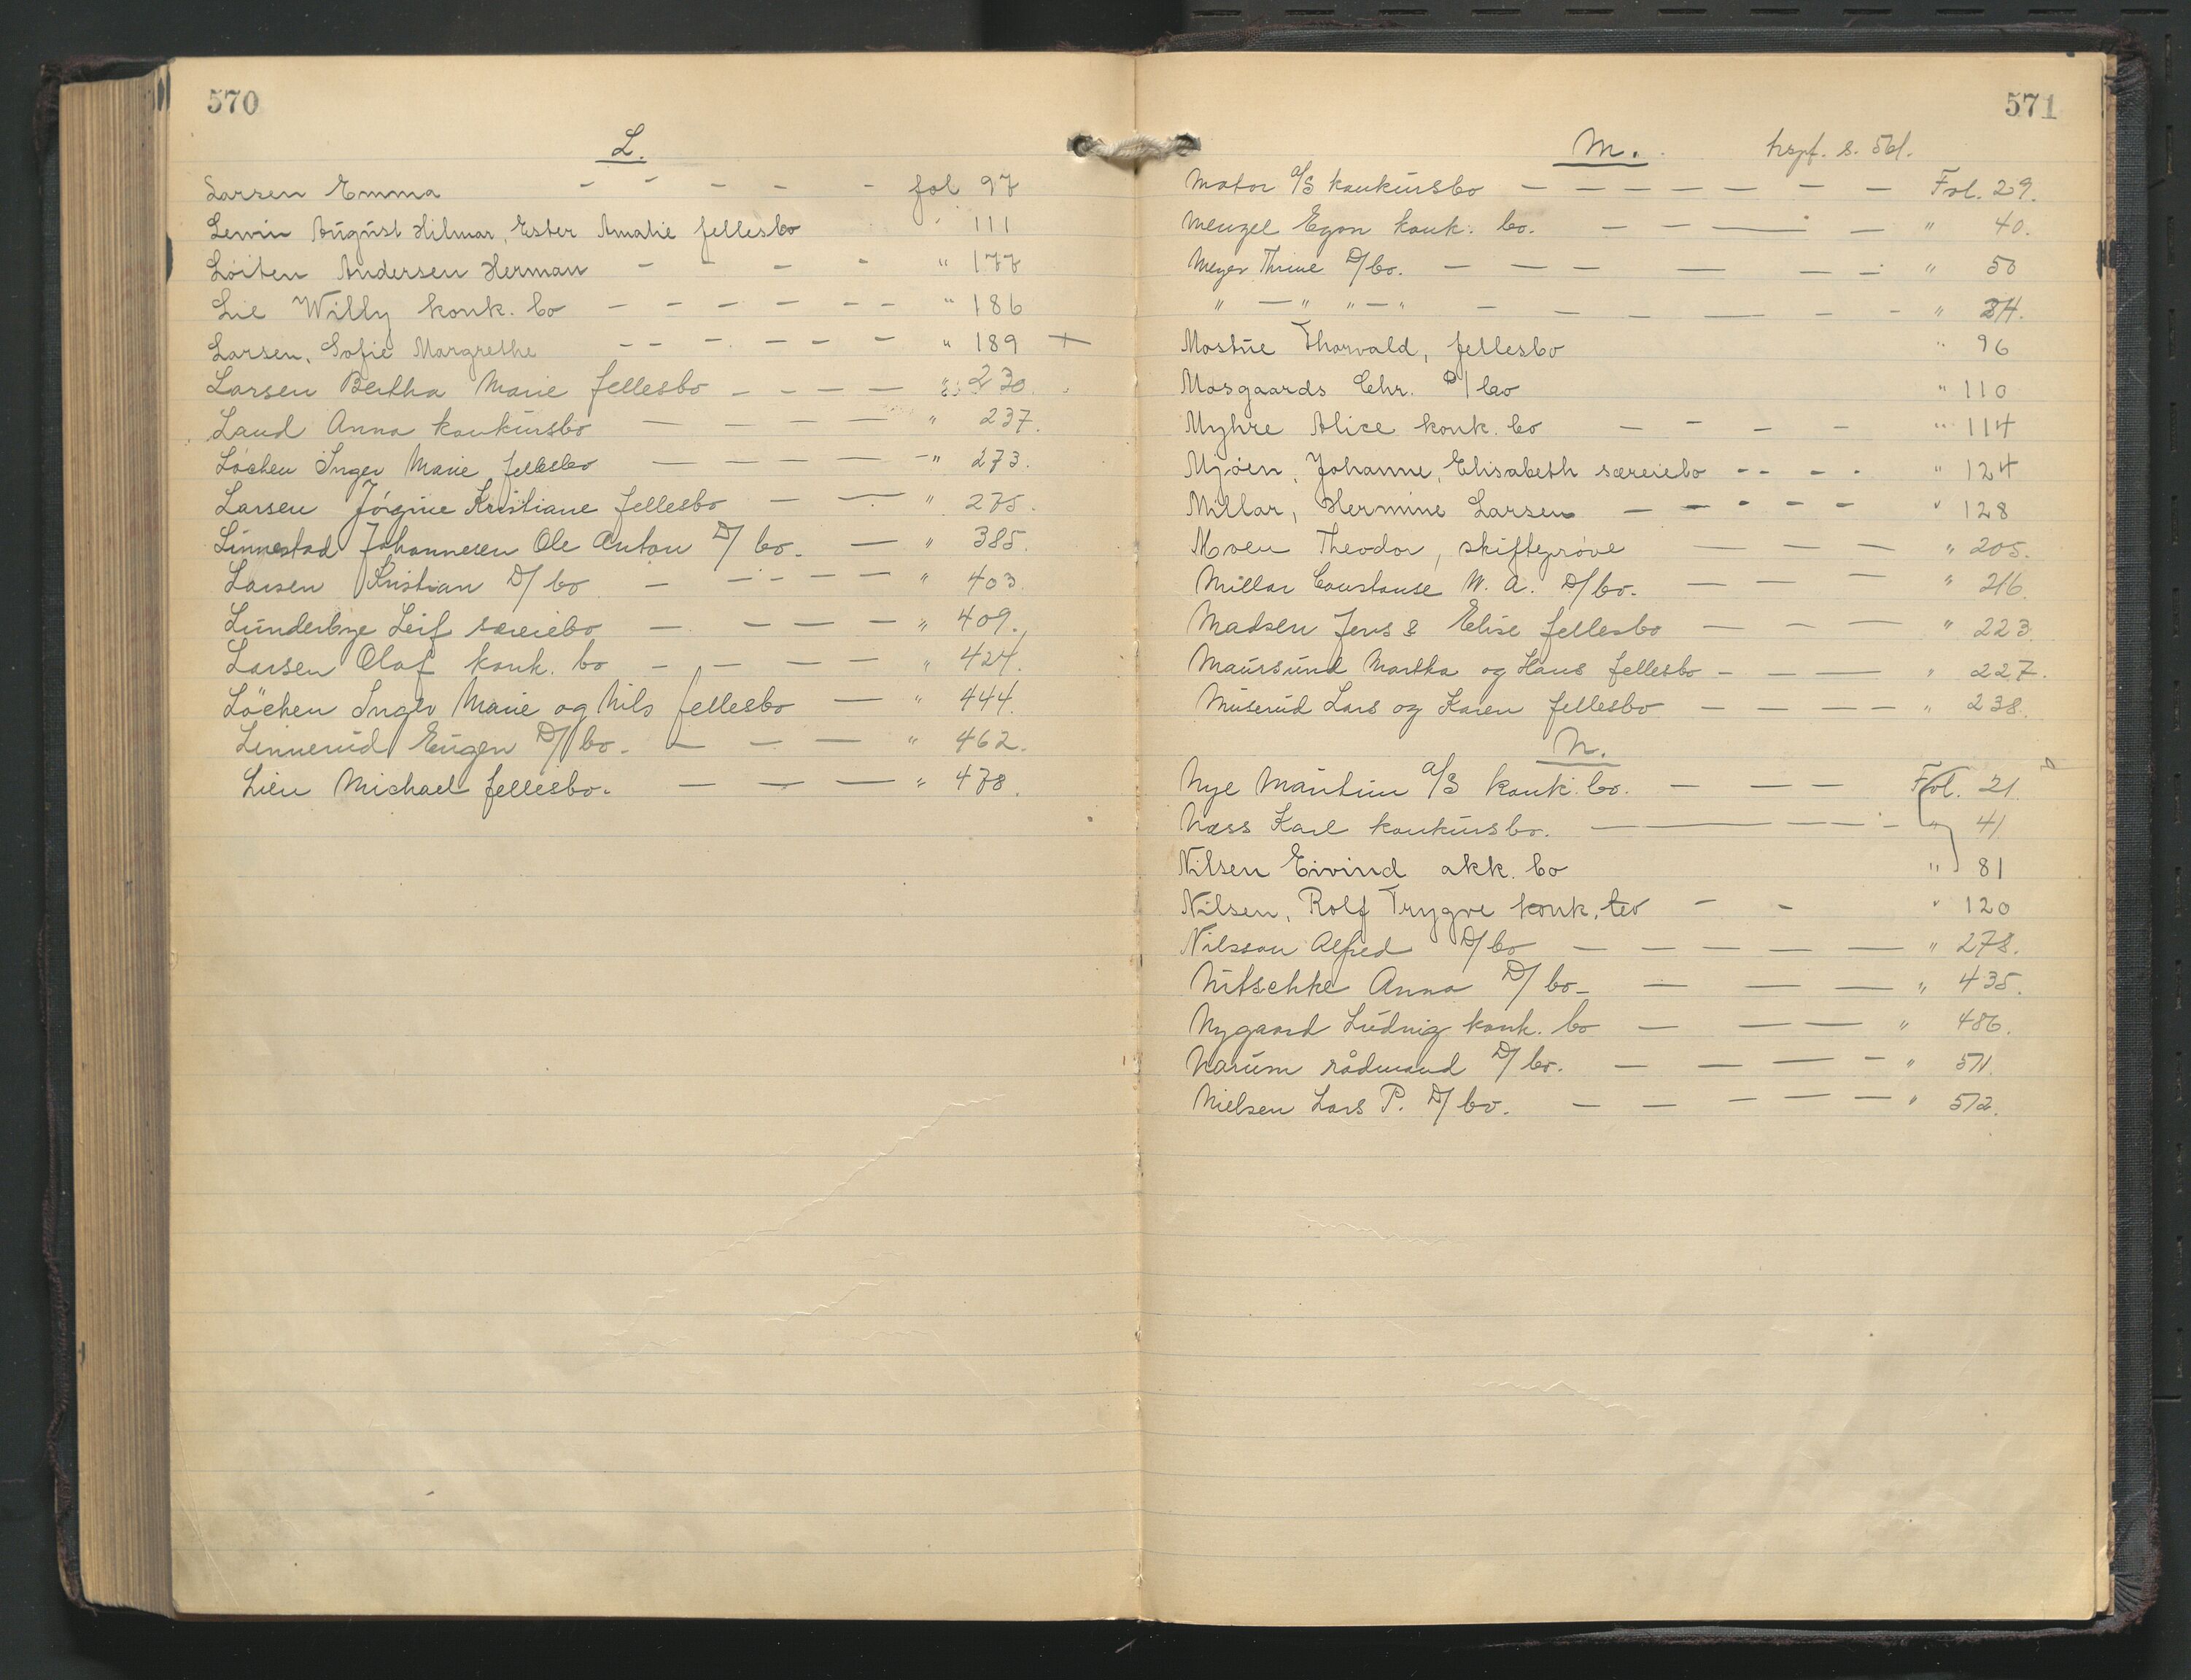 570
L.
Larsen Emma - - - - - fol 97
Lewin August Hilmar, Ester Amalie fellesbo " 111
Löiten Andersen Herman - - - - " 177
Lie Willy konk. bo - - - - - - - " 186
Larsen, Sofie Margrethe - - - - - - " 189 +
Larsen Bertha Marie fellesbo - - - - " 230.
Land Anna konkursbo - - - - " 237.
Löchen Inger Marie fellesbo - - - - - " 273.
Larsen Jörgine Kristiane fellesbo - - " 275.
Linnestad Johannesen Ole Anton D/bo. - " 385.
Larsen Kristian D/bo - - - - - " 403.
Lunderbye Leif særeiebo - - - - - " 409.
Larsen Olaf konk. bo - - - - - " 424.
Löchen Inger Marie og Nils fellesbo - " 444.
Linnerud Eugen D/bo. - - - " 462.
Lien Michael fellesbo. - - - " 478.
571
M. hspf. s. 561.
Motor A/S konkursbo - - - - - - - - Fol. 29.
Menzel Egon konk. bo. - - - - " 40.
Meyer Thrine D/bo. - - - - - - " 50
" - " " - " - - - - - - " 34.
Mostue Thorvald, fellesbo " 96
Mosgaards Chr. D/bo " 110
Myhre Alice konk. bo - - - - " 114
Mjöen, Johanne, Elisabeth særeiebo - - - - " 124
Millar, Hermine Larsen - - - - - " 128
Moen Theodor, skifteprøve - - - " 205.
Millar Constanse W. A. D/bo. - - - " 216.
Madsen Jens & Elise fellesbo - - - " 223.
Maursund Martha og Hans fellesbo - - - " 227.
Muserud Lars og Karen fellesbo - - - - " 238.
N.
Nye Maritim A/S konk. bo. - - - Fol. 21.
Næss Karl konkursbo. - - - - " 41
Nilsen Eivind akk. bo " 81
Nilsen, Rolf Trygve konk. bo - - " 120
Nilsson Alfred D/bo - - - - - " 278.
Nitschke Anna D/bo - - - - " 435.
Nygaard Ludvig konk. bo - - - " 486.
Narum rådmand D/bo. - - - - " 511.
Nielsen Lars P. D/bo. - - - - - " 512.